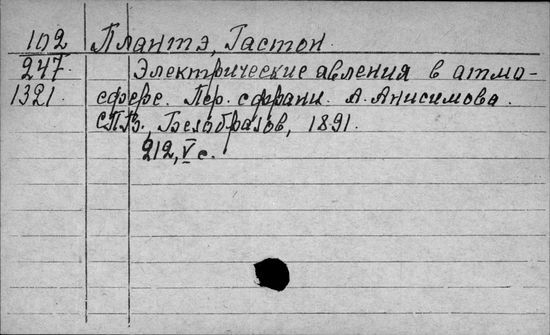 102 Плантэ, Гастон.
247. Электрические явления в атмо-
1321. сфере. Пер. с франц. А. Анисимова.
СПБ., Безобразов, 1891.
212, V с.